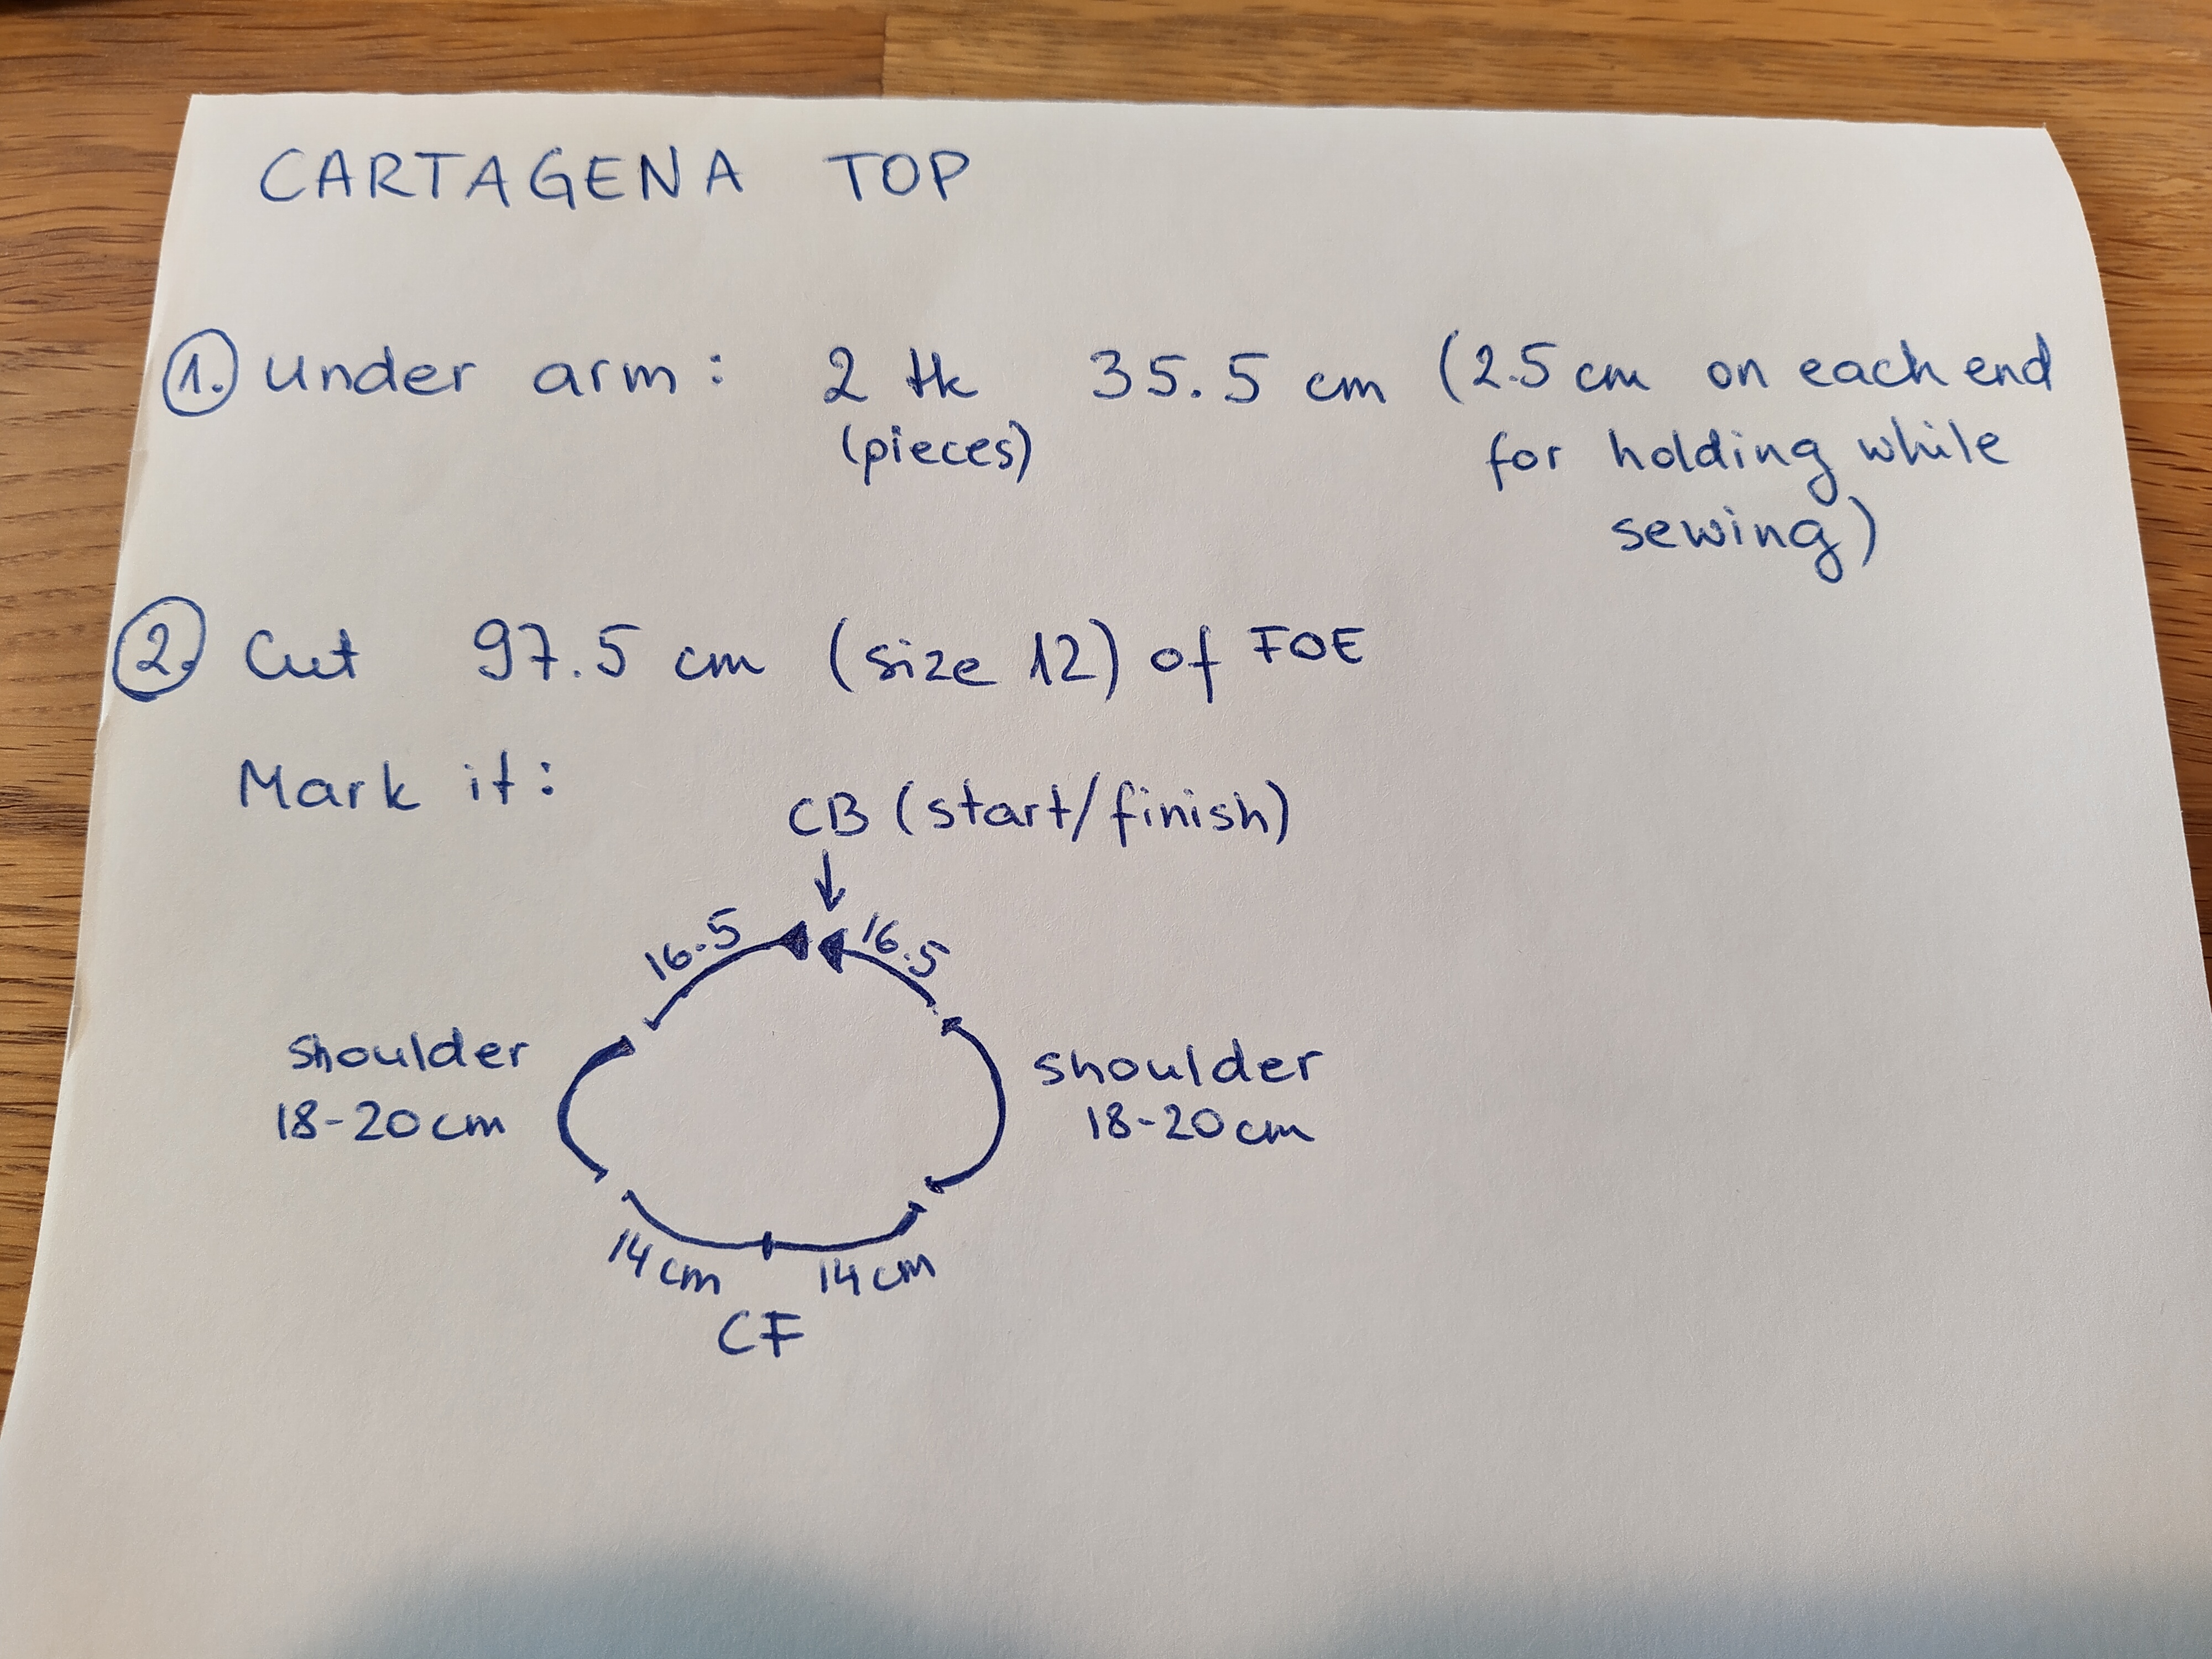 CARTAGENA TOP
1. Under arm: 2 tk 35.5 cm (2.5 cm on each end
(pieces) for holding while
sewing)
2. Cut 97.5 cm (size 12) of FOE
Mark it:
CB (start/finish)
16.5 16.5
shoulder shoulder
18-20cm 18-20cm
14cm 14cm
CF